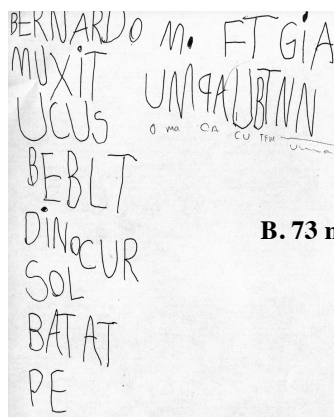 BERNARDO M. FT GiA
MUXiT
UMQAUBTNN
O ma CA CU TFM
UCUS
BEBLT
DiNOCUR
SOL
BATAT
PE
B. 73 n